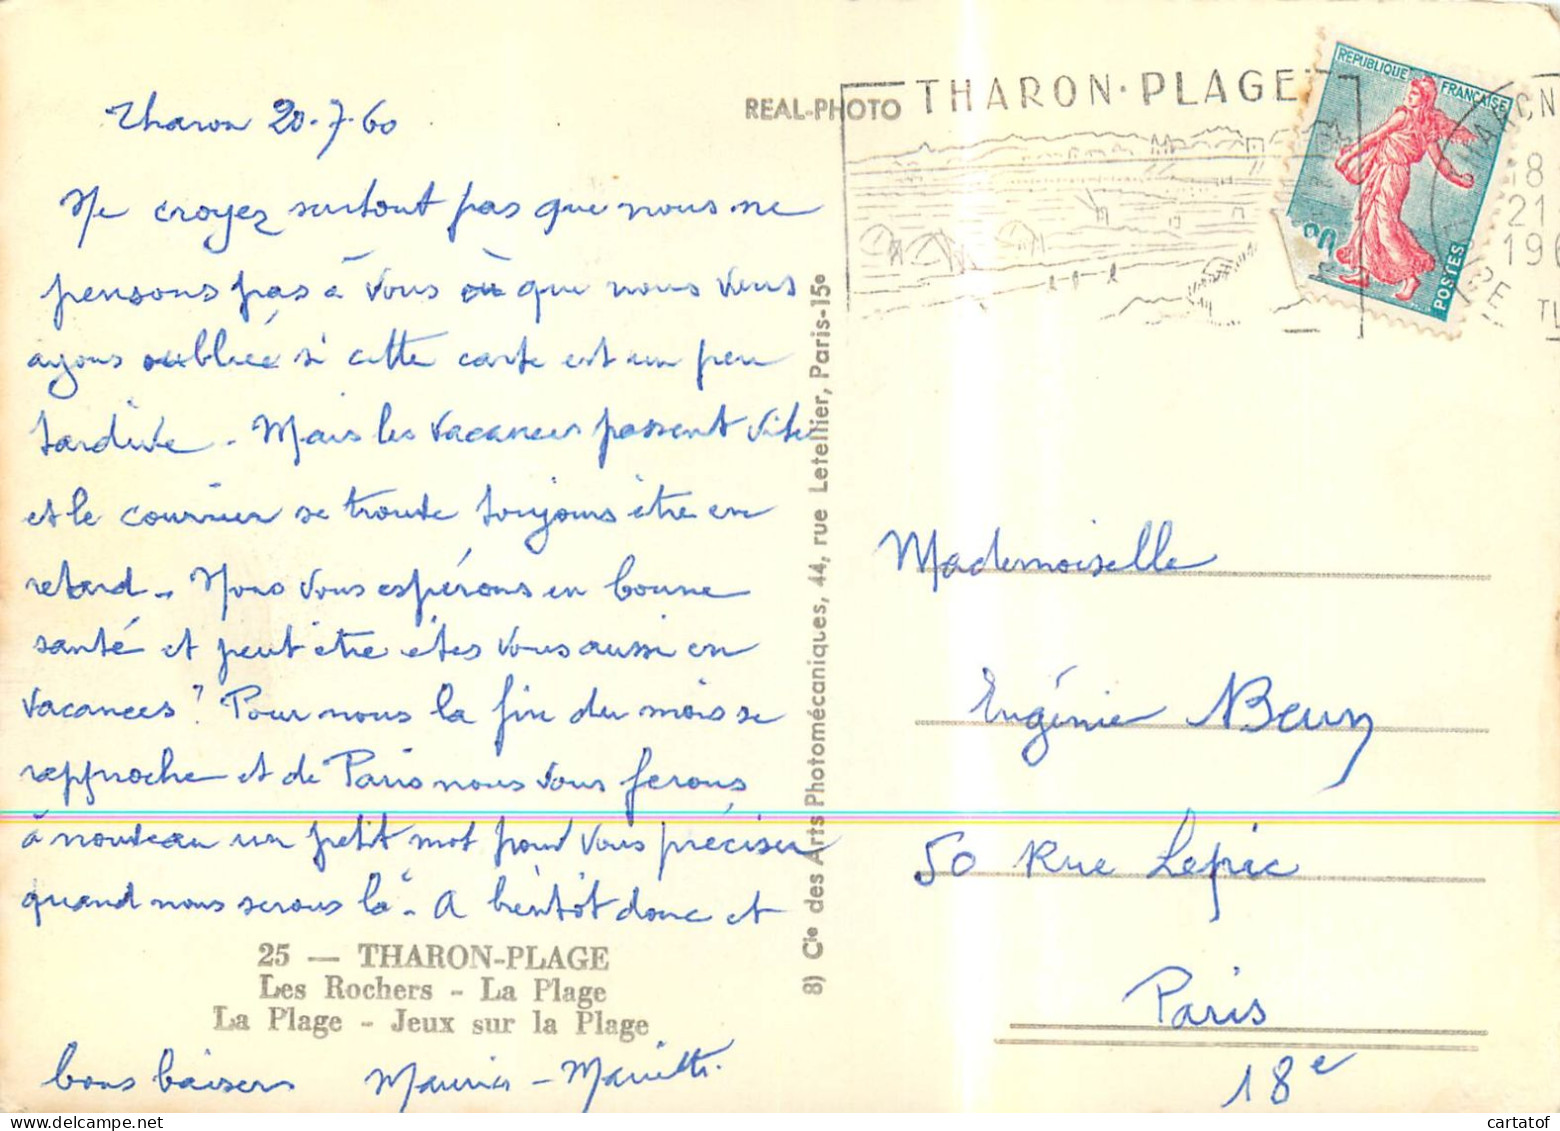 Tharon 20.7.60
Ne croyez surtout pas que nous ne
pensons pas à vous où que nous vous
ayons oubliée si cette carte est un peu
tardive - Mais les vacances passent vite
et le courrier se trouve toujours être en
retard - Nous vous espérons en bonne
santé et peut être êtes vous aussi en
vacances? Pour nous la fin du mois se
rapproche et de Paris nous vous ferons
à nouveau un petit mot pour vous préciser
quand nous serons là. A bientôt donc et
25 — THARON-PLAGE
Les Rochers - La Plage
La Plage - Jeux sur la Plage
bons baisers Maurice - Mariette.
REAL-PHOTO
8) Cie des Arts Photomécaniques, 44, rue Letellier, Paris-15e
THARON·PLAGE
REPUBLIQUE FRANÇAISE
POSTES
18
21
196
Mademoiselle
Eugénie
50 Rue Lepic
Paris
18e
cartatof